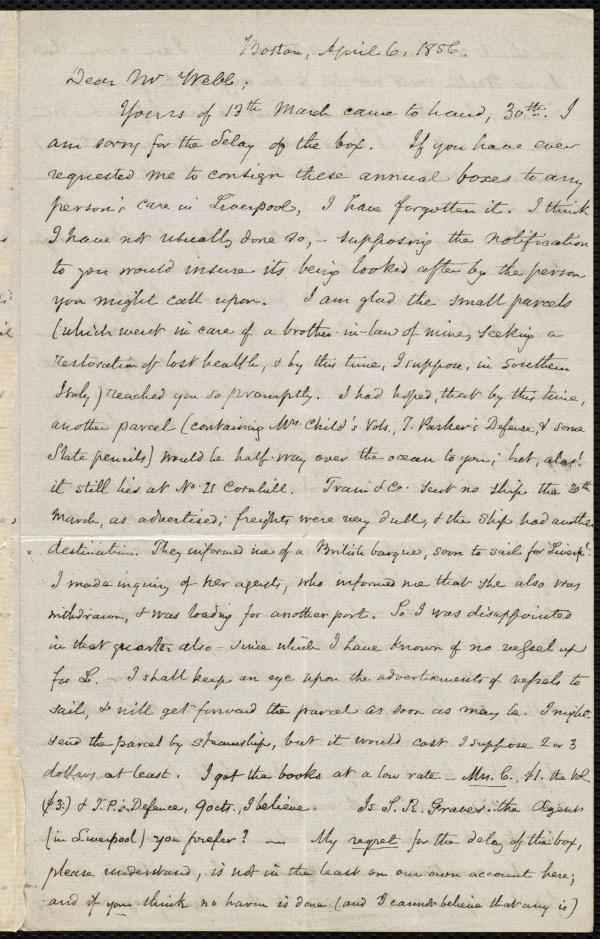 Boston, April 6, 1856.
Dear Mr Webb;
Yours of 13th March came to hand, 30th. I
am sorry for the delay of the box. If you have ever
requested me to consign these annual boxes to any
person's care in Liverpool, I have forgotten it. I think
I have not usually done so, – supposing the notification
to you would insure its being looked after by the person
you might call upon. I am glad the small parcels
(which went in care of a brother-in-law of mine, seeking a
restoration of lost health, & by this time, I suppose, in Southern
Italy) reached you so promptly. I had hoped, that by this time,
another parcel (containing Mrs Child's Vols., T. Parker's Defence, & some
Slate pencils) would be half-way over the ocean to you; but, alas!
it still lies at No. 21 Cornhill. Train & Co. sent no ship the 20th
March, as advertised; freights were very dull, & the ship had another
destination. They informed me of a British barque, soon to sail for Liverpl.
I made inquiry of her agents, who informed me that she also was
withdrawn, & was loading for another port. So I was disappointed
in that quarter also – since which I have known of no vessel up
for L. – I shall keep an eye upon the advertisements of vessels to
sail, & will get forward the parcel as soon as may be. I might
send the parcel by steamship, but it would cost I suppose 2 or 3
dollars at least. I got the books at a low rate – Mrs. C. $1. the vol.
($3.) & T.P.'s Defence, 90cts., I believe. Is S. R. Graves the Agent
(in Liverpool) you prefer? — My regret for the delay of the box,
please understand, is not in the least on our own account here;
and if you think no harm is done (and I cannot believe that any is)